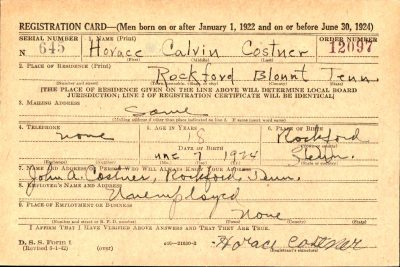 REGISTRATION CARD—(Men born on or after January 1, 1922 and on or before June 30, 1924)
SERIAL NUMBER 1. NAME (Print) ORDER NUMBER
N 645 Horace Calvin Costner 12097
(First) (Middle) (Last)
2. PLACE OF RESIDENCE (Print)
Rockford Blount Tenn.
[THE PLACE OF RESIDENCE GIVEN ON THE LINE ABOVE WILL DETERMINE LOCAL BOARD
JURISDICTION; LINE 2 OF REGISTRATION CERTIFICATE WILL BE IDENTICAL]
3. MAILING ADDRESS
Same
[Mailing address if other than place indicated on line 2. If same insert word same]
4. TELEPHONE 5. AGE IN YEARS 6. PLACE OF BIRTH
none 8 Rockford
DATE OF BIRTH
7 1924 Tenn.
(Mo.) (Day) (Yr.)
7. NAME AND ADDRESS OF PERSON WHO WILL ALWAYS KNOW YOUR ADDRESS
John A. Costner, Rockford, Tenn.
8. EMPLOYER'S NAME AND ADDRESS
Unemployed
9. PLACE OF EMPLOYMENT OR BUSINESS
None
(Number and street or R. F. D. number) (Town) (County) (State)
I AFFIRM THAT I HAVE VERIFIED ABOVE ANSWERS AND THAT THEY ARE TRUE.
D. S. S. Form 1
(Revised 6-1-42) (over) Horace Costner
(Registrant's signature)